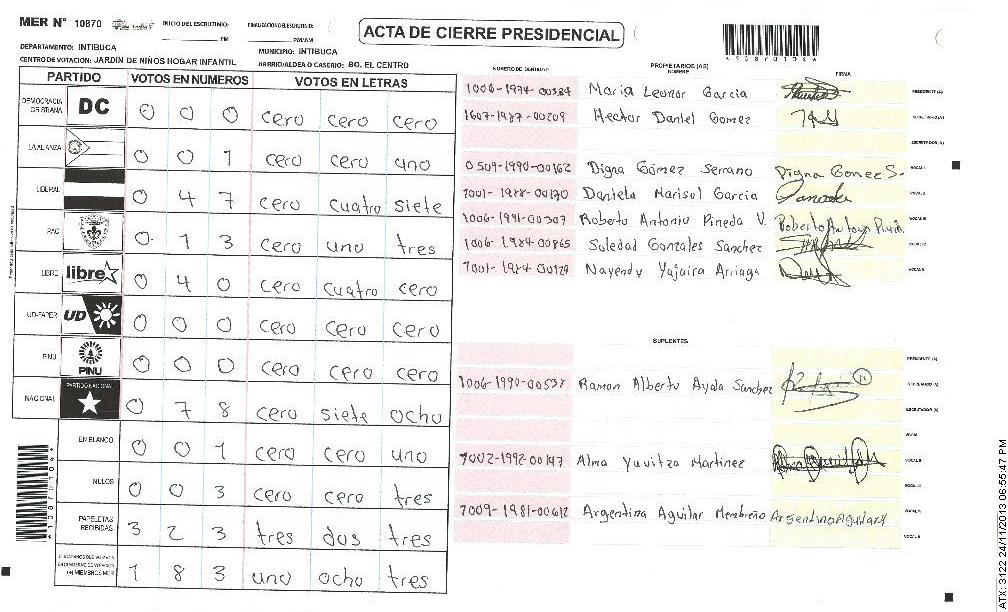 MER N° 10870 INICIO DEL ESCRUTINIO: PM FINALIZACION DEL ESCRUTINIO: PM/AM
ACTA DE CIERRE PRESIDENCIAL
DEPARTAMENTO: INTIBUCA MUNICIPIO: INTIBUCA
CENTRO DE VOTACION: JARDIN DE NIÑOS HOGAR INFANTIL BARRIO/ALDEA O CASERIO: BO. EL CENTRO
PARTIDO VOTOS EN NUMEROS VOTOS EN LETRAS
DEMOCRACIA CRISTIANA DC 0 0 0 cero cero cero
LA ALIANZA 0 0 1 cero cero uno
LIBERAL 0 4 7 cero cuatro siete
PAC 0 1 3 cero uno tres
LIBRE libre 0 4 0 cero cuatro cero
UD-FAPER UD 0 0 0 cero cero cero
PINU PINU 0 0 0 cero cero cero
NACIONAL PARTIDO NACIONAL 0 7 8 cero siete ocho
EN BLANCO 0 0 1 cero cero uno
NULOS 0 0 3 cero cero tres
PAPELETAS RECIBIDAS 3 2 3 tres dos tres
(+) MIEMBROS MER 1 8 3 uno ocho tres
NUMERO DE IDENTIDAD PROPIETARIOS (AS) NOMBRE FIRMA
1006-1974-00384 Maria Leonor Garcia PRESIDENTE (A)
1607-1987-00209 Hector Daniel Gomez SECRETARIO (A)
ESCRUTADOR (A)
0509-1990-00162 Digna Gómez Serrano Digna Gomez S. VOCAL I
1001-1988-00170 Daniela Marisol Garcia VOCAL II
1006-1991-00307 Roberto Antonio Pineda V. VOCAL III
1006-1984-00865 Soledad Gonzales Sanchez VOCAL IV
1001-1984-00129 Nayendy Yajaira Arriaga VOCAL V
SUPLENTES
PRESIDENTE (A)
1006-1990-00538 Ramon Alberto Ayala Sanchez SECRETARIO (A)
ESCRUTADOR (A)
VOCAL I
1002-1992-00147 Alma Yuvitza Martinez VOCAL II
VOCAL III
1009-1981-00612 Argentina Aguilar Membreño Argentina Aguilar M VOCAL IV
VOCAL V
*10870104*
ATX: 3122 24/11/2013 06:55:47 PM